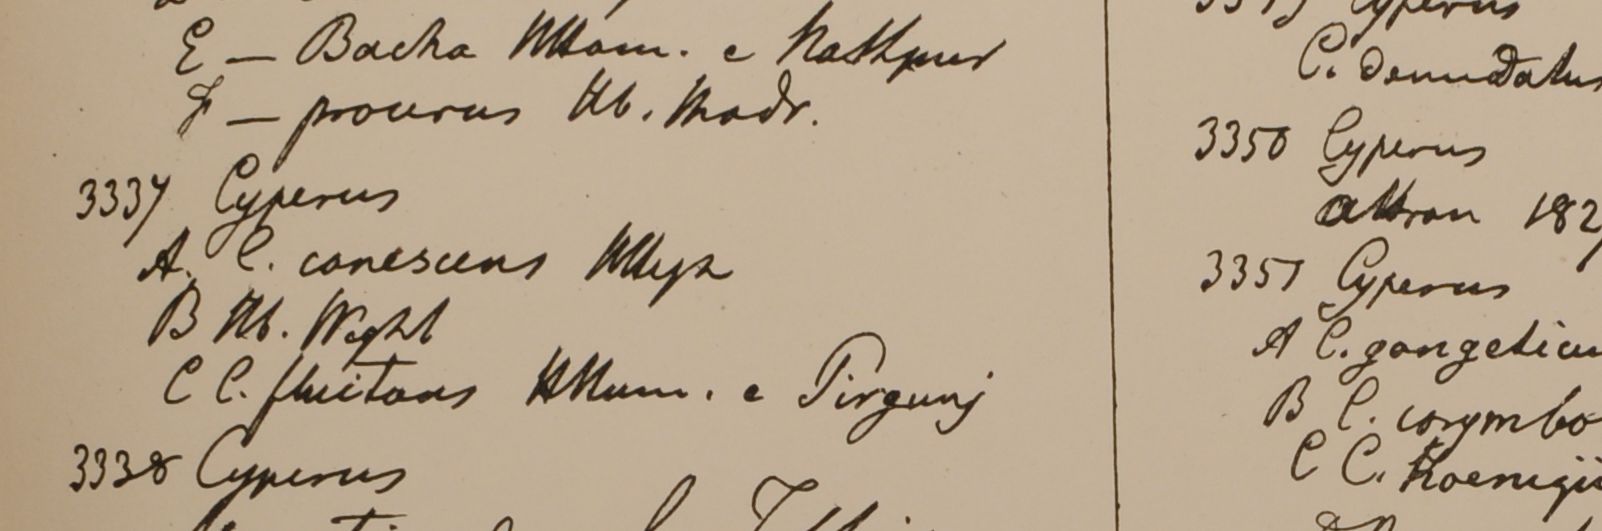 E — Bacha Ham. e Nathpur
F — procerus Hb. Madr.
3337 Cyperus
A. C. canescens
B Hb. Wight
C C. fluitans Ham. e Pirgunj
3338 Cyperus
Cyperus
C. denudatus
3350 Cyperus
182
3351 Cyperus
A C. gangeticu
B C. corymbo
C C. Koenigii